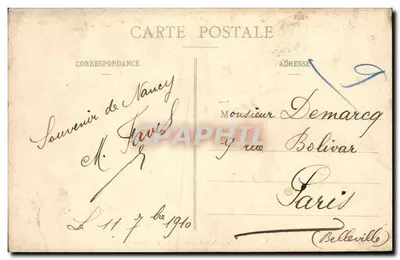 CARTE POSTALE
CORRESPONDANCE
ADRESSE
Souvenir de Nancy
M.
Le 11 7bre 1910
Monsieur Demarcq
9 rue Bolivar
Paris
(Belleville)
CPAPHIL
9